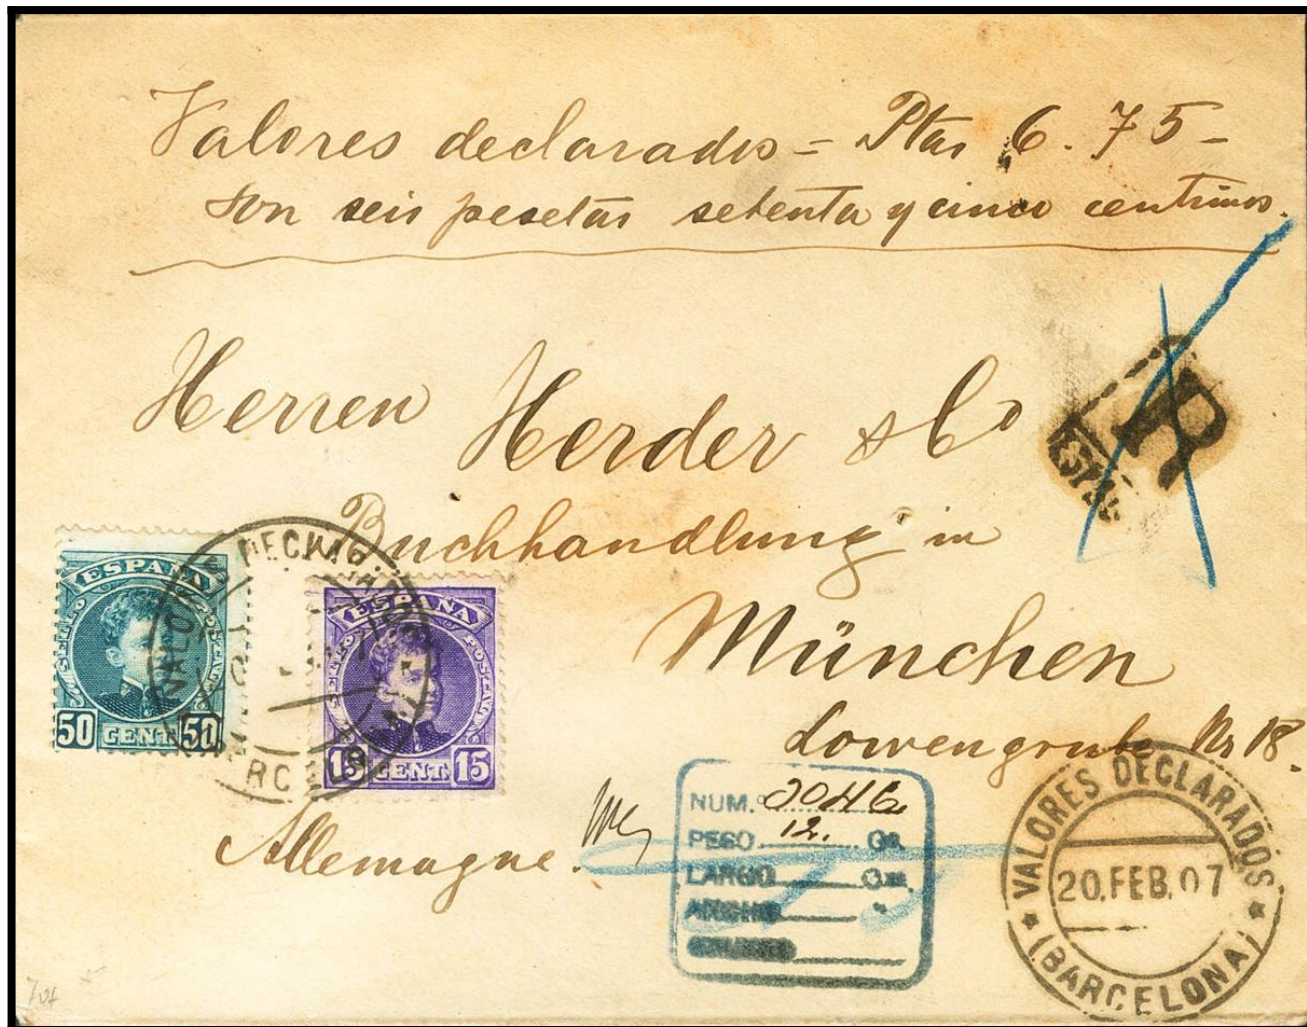 Valores declarados = Ptas 6.75-
son seis pesetas setenta y cinco centimos.
Herren Herder & Co
Buchhandlung in
München
Lowengrube Nr 18.
Allemagne.
R
ESPAÑA
SELLO POSTAL
50 CENT 50
ESPAÑA
SELLO POSTAL
15 CENT. 15
VALORES DECLARADOS
NUM.º 2046
PESO 12. Gr.
LARGO Cm.
ANCHO "
VALORES DECLARADOS
20.FEB.07
(BARCELONA)